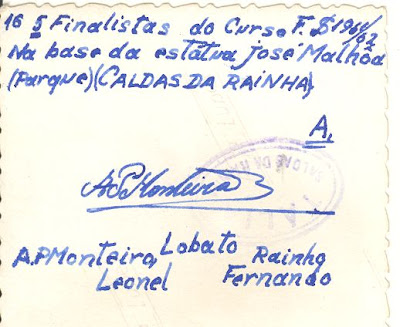 16 5 Finalistas do Curso F. $1961/62
Na base da estátua José Malhôa
(Parque) (CALDAS DA RAINHA)
A.
APMonteiro
CALDAS DA
A.PMonteiro, Lobato Rainho
Leonel Fernando